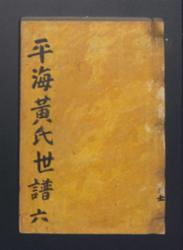 平海黃氏世譜 六